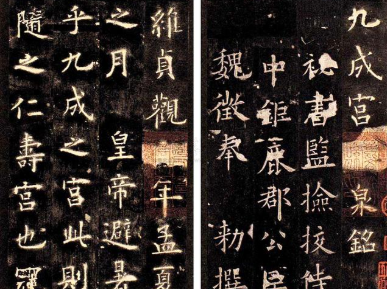 九成宮 泉銘
秘書監撿挍侍
中鉅鹿郡公臣
魏徵奉 勑撰
維貞觀 年孟夏
之月 皇帝避暑
乎九成之宮此則
隨之仁壽宮也